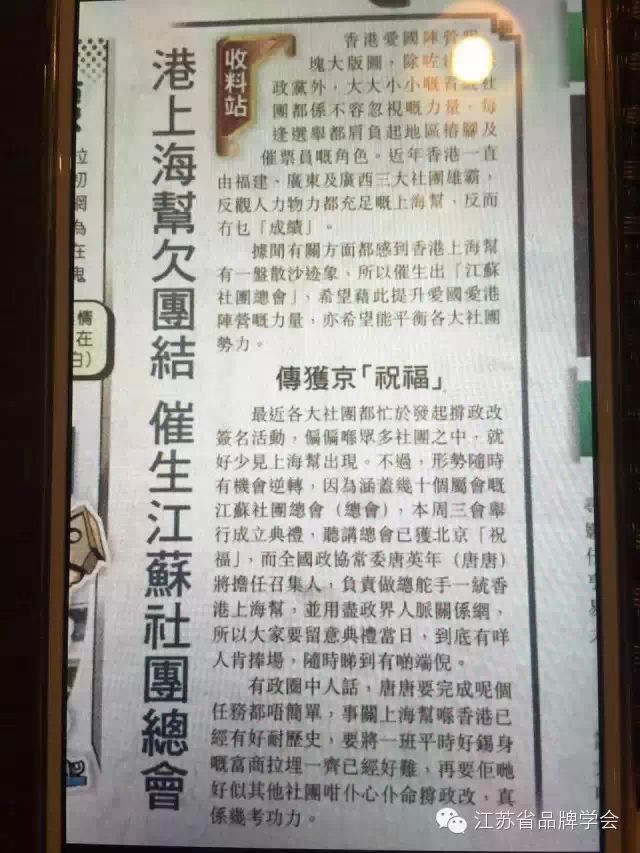 港上海幫欠團結 催生江蘇社團總會
收料站
香港愛國陣營
塊大版圖，除咗
政黨外，大大小小嘅社
團都係不容忽視嘅力量，每
逢選舉都肩負起地區樁腳及
催票員嘅角色。近年香港一直
由福建、廣東及廣西三大社團雄霸，
反觀人力物力都充足嘅上海幫，反而
冇乜「成績」。
據聞有關方面都感到香港上海幫
有一盤散沙迹象，所以催生出「江蘇
社團總會」，希望藉此提升愛國愛港
陣營嘅力量，亦希望能平衡各大社團
勢力。
傳獲京「祝福」
最近各大社團都忙於發起撐政改
簽名活動，偏偏喺眾多社團之中，就
好少見上海幫出現。不過，形勢隨時
有機會逆轉，因為涵蓋幾十個屬會嘅
江蘇社團總會（總會），本周三會舉
行成立典禮，聽講總會已獲北京「祝
福」，而全國政協常委唐英年（唐唐）
將擔任召集人，負責做總舵手一統香
港上海幫，並用盡政界人脈關係網，
所以大家要留意典禮當日，到底有咩
人肯捧場，隨時睇到有啲端倪。
有政圈中人話，唐唐要完成呢個
任務都唔簡單，事關上海幫喺香港已
經有好耐歷史，要將一班平時好錫身
嘅富商拉埋一齊已經好難，再要佢哋
好似其他社團咁仆心仆命撐政改，真
係幾考功力。
拉
初
網
為
在
鬼
情
在
白）
江苏省品牌学会